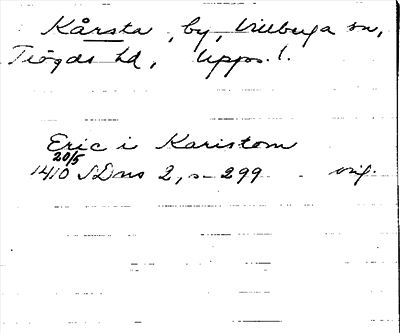 Kårsta, by, Villberga sn,
Trögds hd, Upps. l.
Eric i Karistom
20/5
1410 SDns 2, s 299 orig.